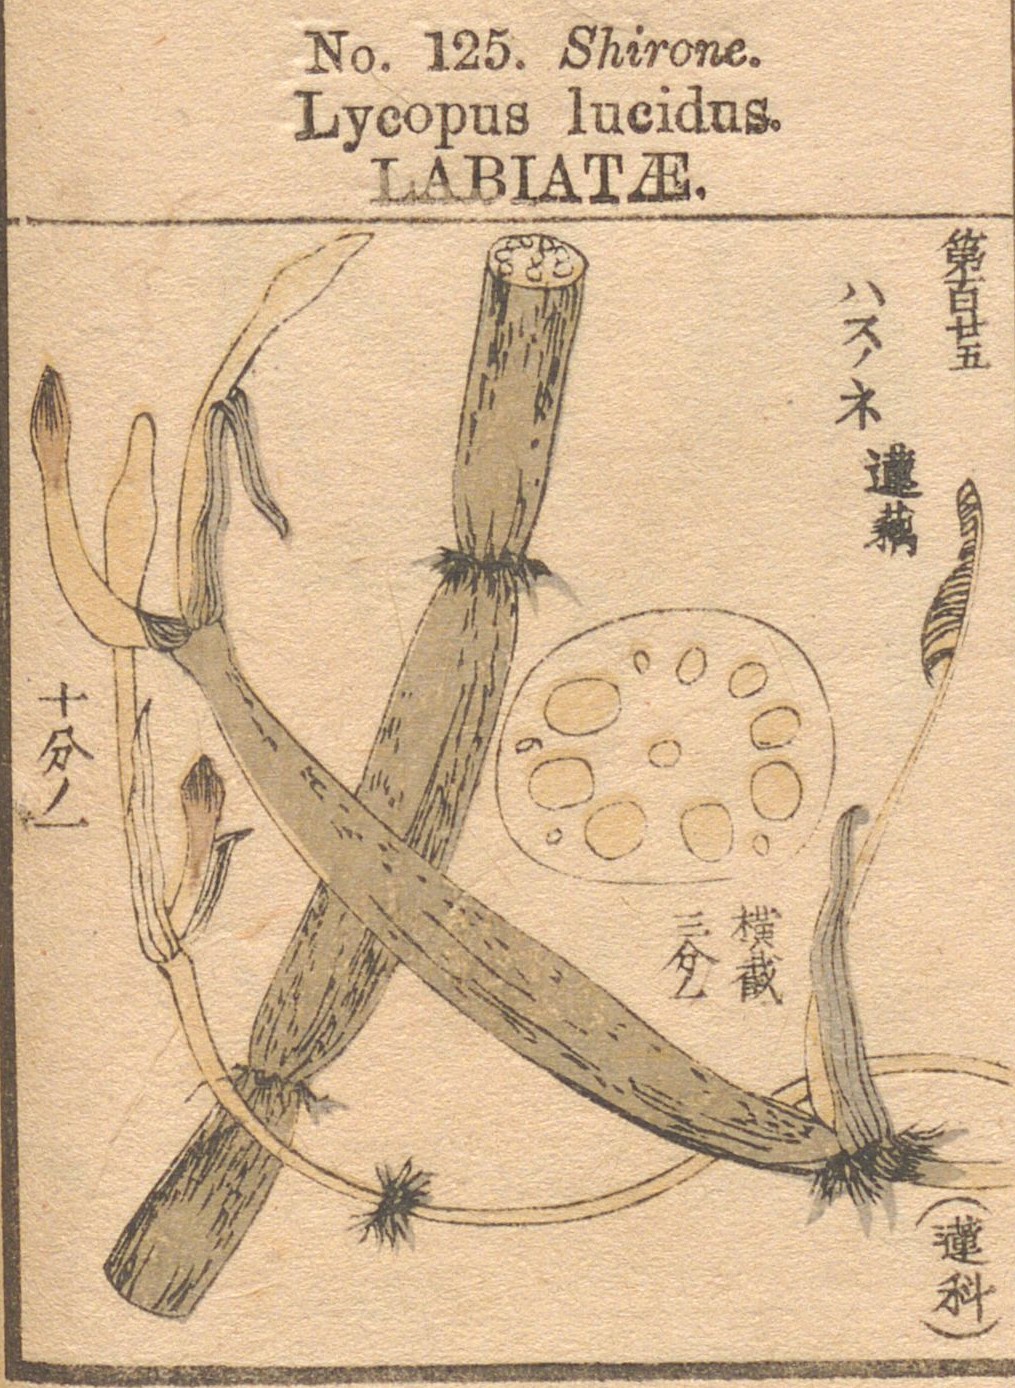 No. 125. Shirone.
Lycopus lucidus.
LABIATÆ.
第百廿五
ハスノネ 蓮藕
十分ノ一
横截
三分ノ一
(蓮科)